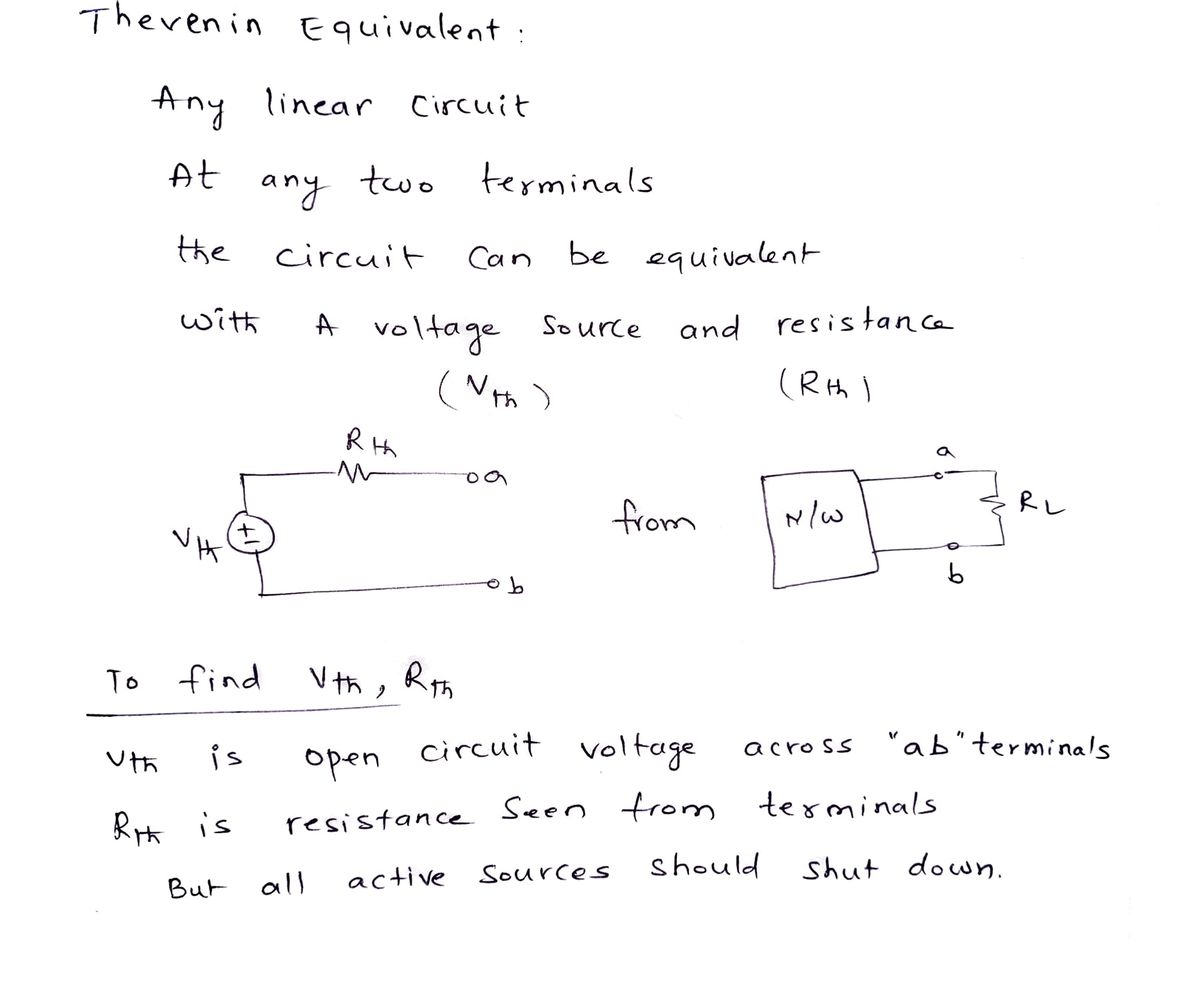 Thevenin Equivalent:
Any linear Circuit
At any two terminals
the circuit Can be equivalent
with A voltage Source and resistance
(Vth) (Rth)
Rth
a
Vth
+
-
b
from
N/W
a
RL
b
To find Vth, Rth
Vth is open circuit voltage across "ab" terminals
Rth is resistance Seen from terminals
But all active Sources should shut down.